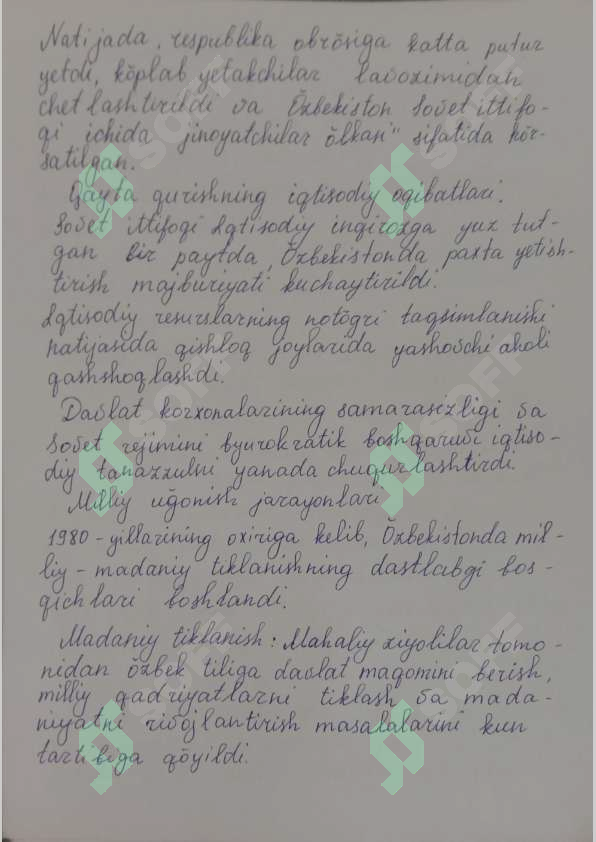 Natijada, respublika obrõsiga katta putur
yetdi, kõplab yetakchilar lavozimidan
chetlashtirildi va Õzbekiston Sovet ittifo-
qi ichida jinoyatchilar õlkasi" sifatida kõr-
satilgan.
Qayta qurishning iqtisodiy oqibatlari.
Sovet ittifoqi Iqtisodiy inqirozga yuz tut-
gan bir paytda, Õzbekistonda paxta yetish-
tirish majburiyati kuchaytirildi.
Iqtisodiy resurslarning notõgri taqsimlanishi
natijasida qishloq joylarida yashovchi aholi
qashshoqlashdi.
Davlat korxonalarining samarasizligi va
Sovet rejimini byurokratik boshqaruvi iqtiso-
diy tanazzulni yanada chuqurlashtirdi.
Milliy uģonish jarayonlari
1980-yillarining oxiriga kelib, Õzbekistonda mil-
liy-madaniy tiklanishning dastlabgi bos-
qichlari boshlandi.
Madaniy tiklanish: Mahaliy ziyolilar tomo-
nidan õzbek tiliga davlat maqomini berish,
milliy qadriyatlarni tiklash va mada-
niyatni rivojlantirish masalalarini kun
tartibiga qõyildi.
SOFF
SOFF
SOFF
SOFF
SOFF
SOFF